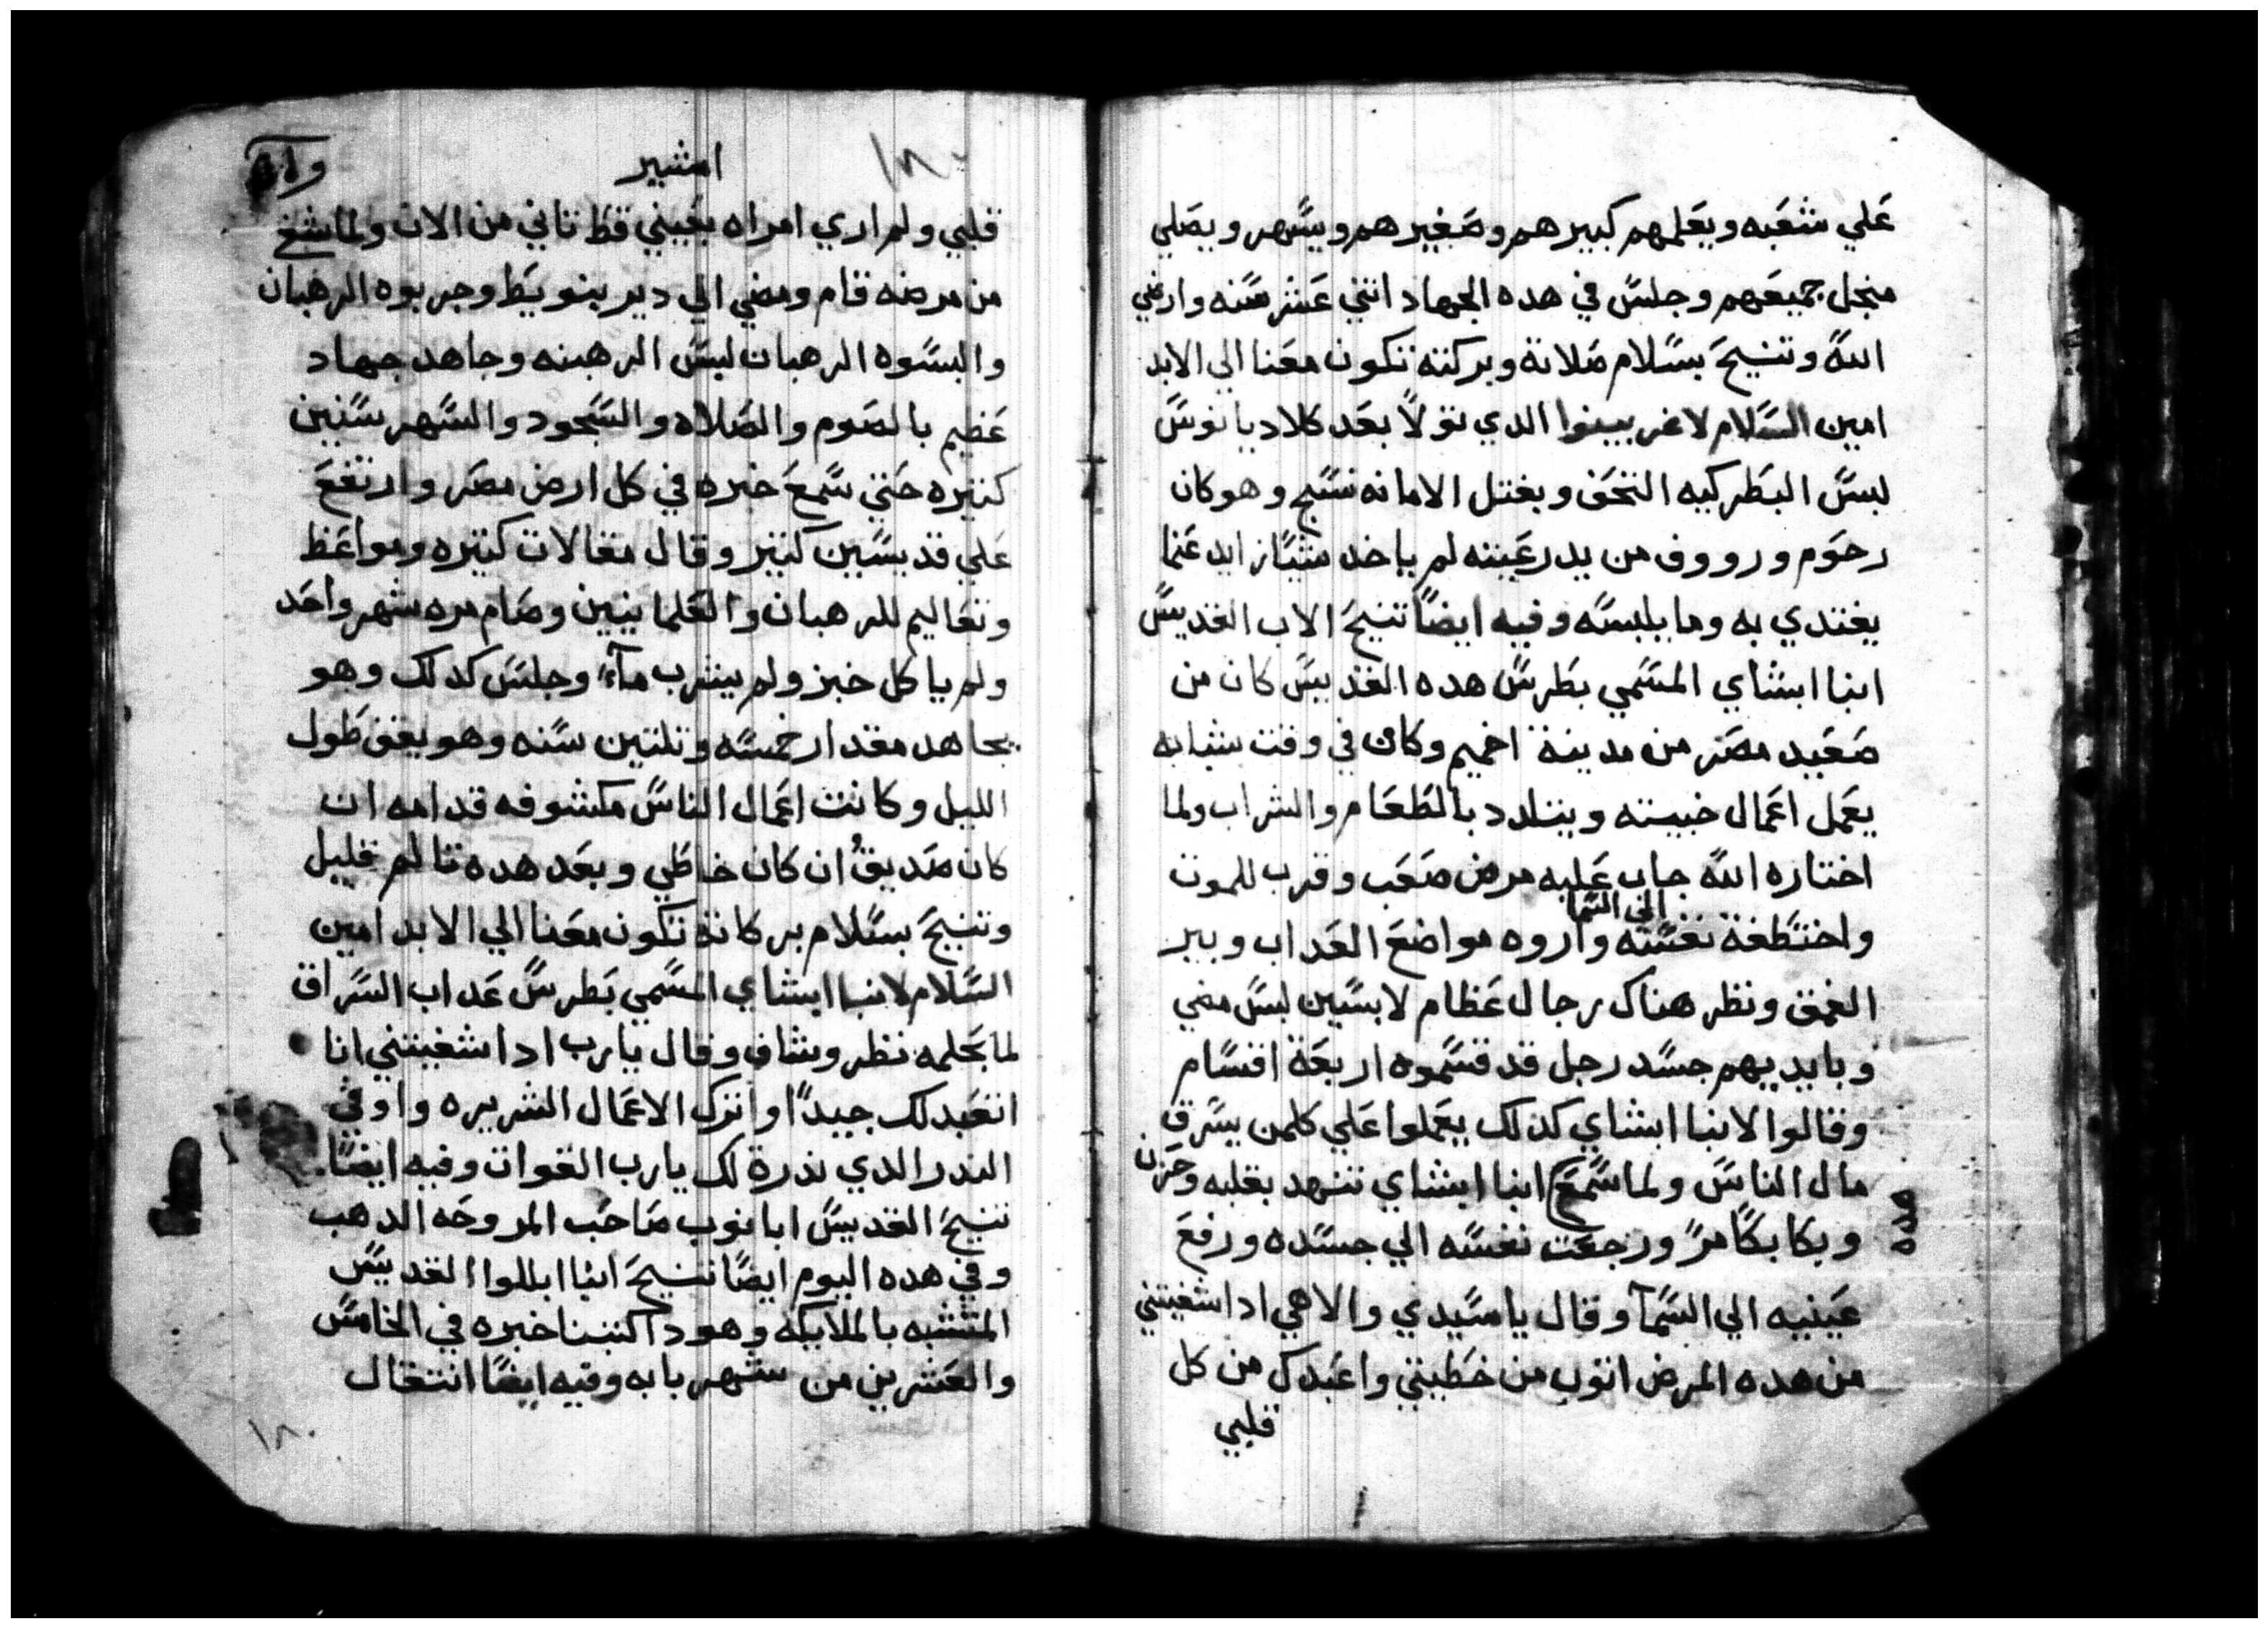 علي شعبه ويعلمهم كبيرهم وصغيرهم ويسهر ويصلي
منجل جميعهم وجلس في هده الجهاد اتني عشر سنه وارضي
الله وتنيح بسلام صلاتة وبركته تكون معنا الي الابد
امين السلام لاغربينوا الدي تولا بعد كلاديانوس
لبس البطركيه النخف وبغتل الامانه نسج وهو كان
رحوم ورووف من يد رعيته لم ياخد شيا زايد عنما
يغتدي به وما يلبسه وفيه ايضا تنيح الاب القديس
انبا ابشاي المسمي بطرس هده القديس كان من
صعيد مصر من مدينة اخميم وكان في وقت شبابه
يعمل اعمال خبيته ويتلدد بالطعام والشراب ولما
اختاره الله جاب عليه مرض صعب وقرب للموت
واختطفة نفسه الي السما واروه مواضع العداب وبير
الغمق ونظر هناك رجال عظام لابسين لبس مضي
وبايديهم جسد رجل قد قسموه اربعة اقسام
وقالوا لانبا ابشاي كدلك يعملوا علي كلمن يسرق
مال الناس ولما سمع انبا ابشاي تنهد بقلبه وحزن
هده
وبكا بكا مر ورجعت نفسه الي جسده ورفع
عينيه الي السما وقال ياسيدي والاهي ادا شفيتني
من هده المرض اتوب من خطيتي واعبدك من كل
قلبي
١٨٠
امشير
قلبي ولم اري امراه بعيني قط تاني من الان ولما شفي
من مرضه قام ومضي الي دير بنويط وجربوه الرهبان
والبسوه الرهبان لبس الرهبنه وجاهد جهاد
عظيم بالصوم والصلاه والسجود والسهر سنين
كتيره حتي سمع خبره في كل ارض مصر وارتفع
علي قديسين كتير وقال مقالات كتيره ومواعظ
وتعاليم للرهبان والعلمانيين وصام مره شهر واحد
ولم ياكل خبز ولم يشرب ماء وجلس كدلك وهو
يجاهد مقدار خمسه وتلتين سنه وهو يقف طول
الليل وكانت اعمال الناس مكشوفه قدامه ان
كان صديق ان كان خاطي وبعد هده تالم قليل
وتنيح بسلام بركاته تكون معنا الي الابد امين
السلام لانبا ابشاي المسمي بطرس عداب السراق
لما بحلمه نظر وشاف وقال يارب ادا شفيتني انا
اتعبد لك جيدا واترك الاعمال الشريره واوفي
الندر الدي ندرة لك يارب القوات وفيه ايضا
تنيح القديس ابا نوب صاحب المروحه الدهب
وفي هده اليوم ايضا تنيح انبا ابللوا القديس
المتشبه بالملايكه وهودا كتبنا خبره في الخامس
والعشرين من شهر بابه وفيه ايضا انتقال
١٨٠